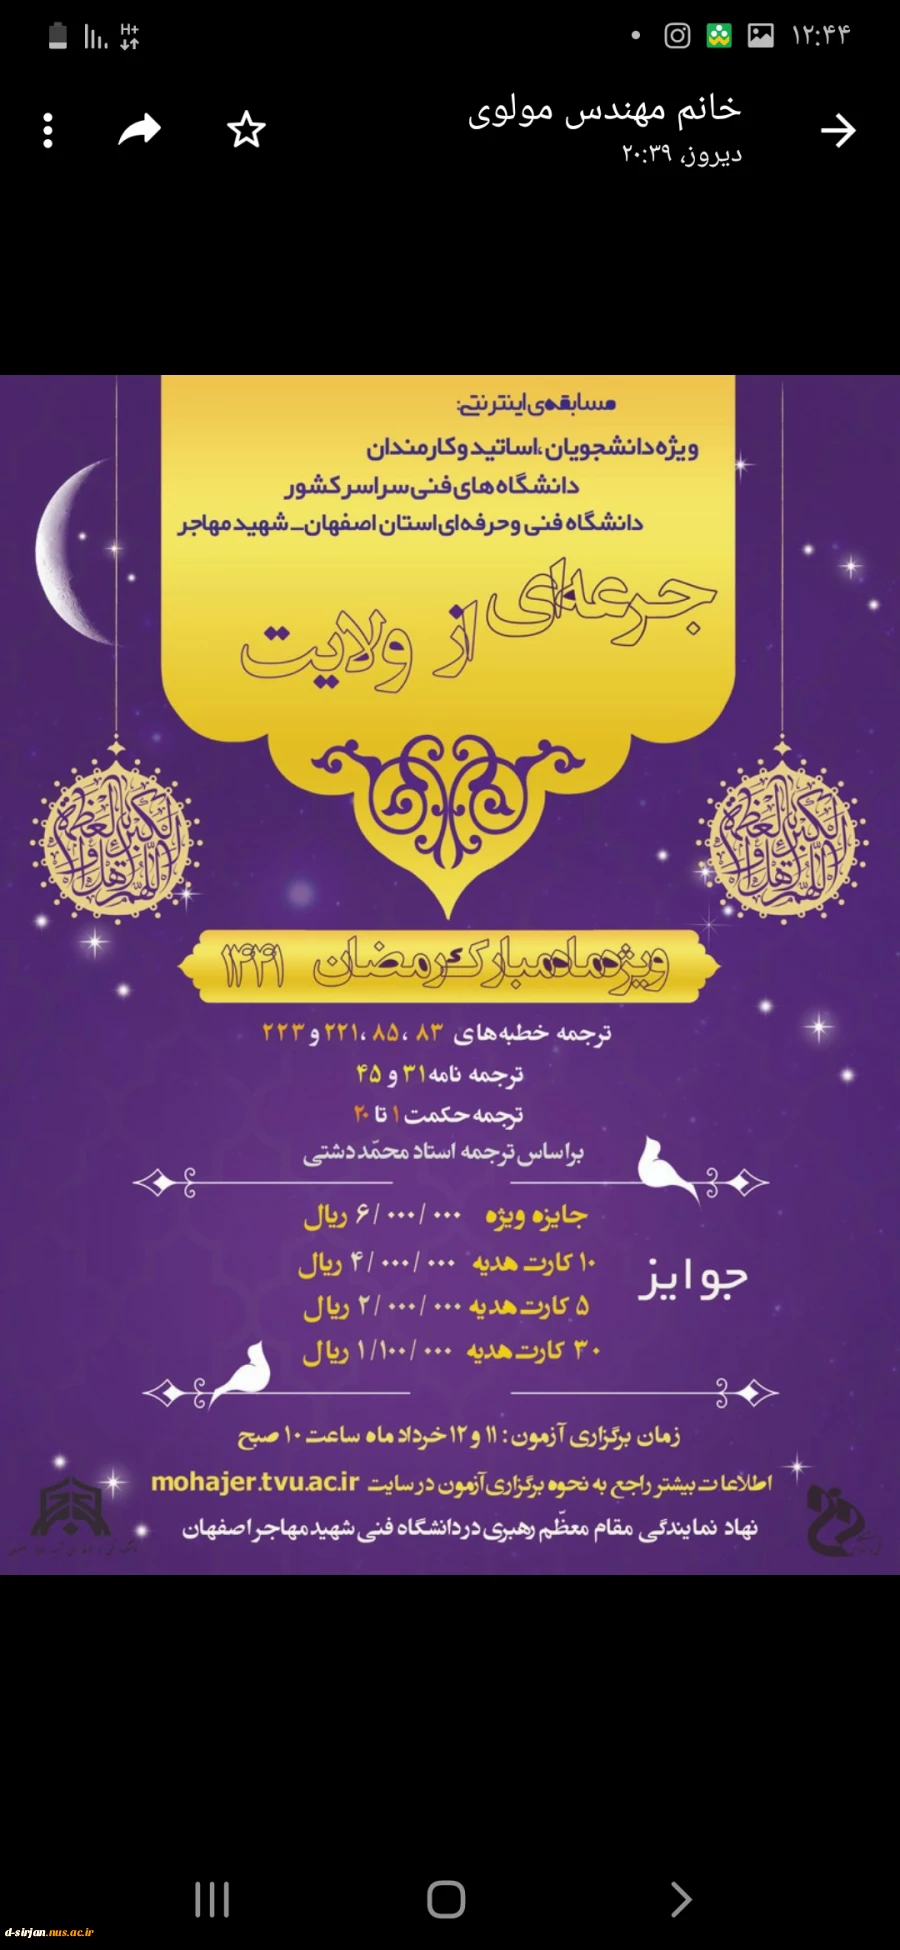 ۱۲:۴۴
H+
خانم مهندس مولوی
دیروز، ۲۰:۳۹
مسابقه‌ی اینترنتی:
ویژه دانشجویان، اساتید و کارمندان
دانشگاه های فنی سراسر کشور
دانشگاه فنی و حرفه‌ای استان اصفهان - شهید مهاجر
جرعه‌ای از ولایت
اللهم اهل الکبریاء و العظمة
اللهم اهل الکبریاء و العظمة
ویژه ماه مبارک رمضان ۱۴۴۱
ترجمه خطبه‌های ۸۳، ۸۵، ۲۲۱ و ۲۲۳
ترجمه نامه ۳۱ و ۴۵
ترجمه حکمت ۱ تا ۲۰
براساس ترجمه استاد محمّد دشتی
جوایز
جایزه ویژه ۶/۰۰۰/۰۰۰ ریال
۱۰ کارت هدیه ۴/۰۰۰/۰۰۰ ریال
۵ کارت هدیه ۲/۰۰۰/۰۰۰ ریال
۳۰ کارت هدیه ۱/۱۰۰/۰۰۰ ریال
زمان برگزاری آزمون: ۱۱ و ۱۲ خرداد ماه ساعت ۱۰ صبح
اطلاعات بیشتر راجع به نحوه برگزاری آزمون در سایت mohajer.tvu.ac.ir
نهاد نمایندگی مقام معظّم رهبری در دانشگاه فنی شهید مهاجر اصفهان
d-sirjan.nus.ac.ir